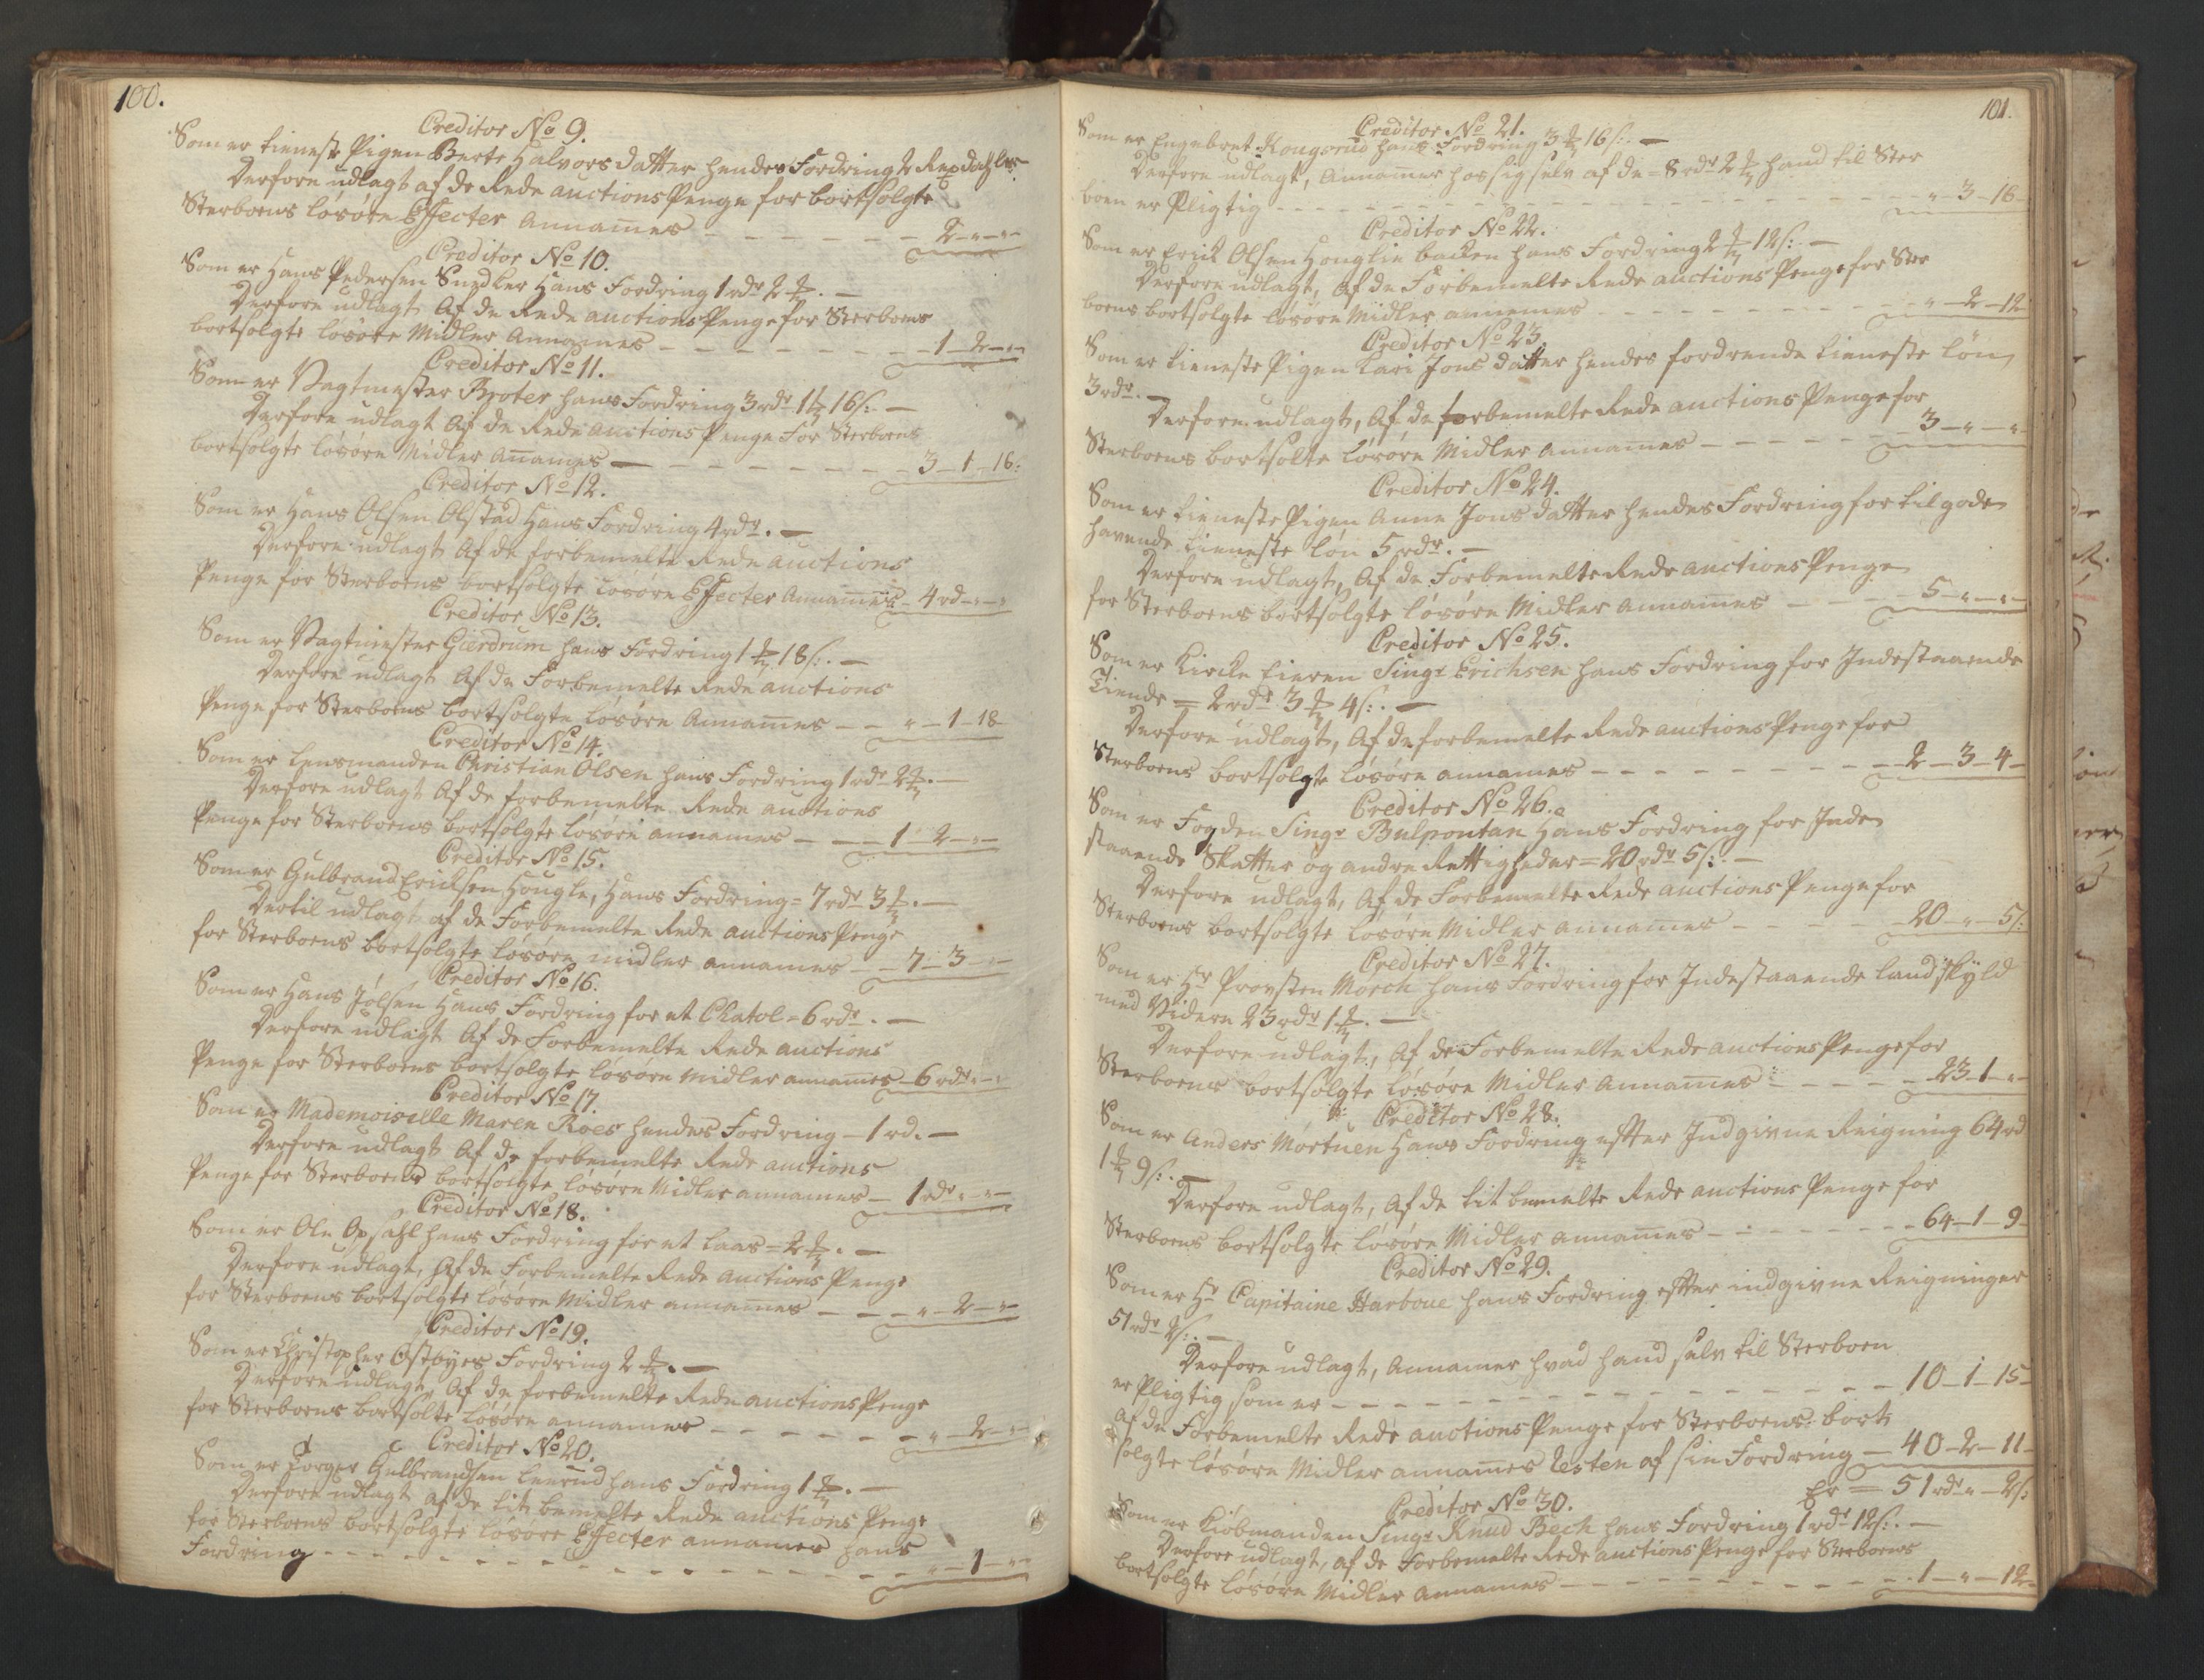 100.
Creditor No 9.
Som er tieneste Pigen Berte Halvorsdatter hendes Fordring 2 Rixdahler
Derfore udlagt af de Rede auctions Penge for bortsolgte
Sterboens løsøre Effecter annames - - - - - - 2 - " - "
Creditor No 10.
Som er Hans Pedersen Snedker Hans Fordring 1 rdr 2 ℔. -
Derfore udlagt Af de Rede auctions Penge for Sterboens
bortsolgte løsøre Midler Annames - - - - - - - 1 - 2 - "
Creditor No 11.
Som er Vagtmester Broter hans Fordring 3 rdr 1 ℔ 16 s: -
Derfore udlagt Af de Rede auctions Penge For Sterboens
bortsolgte løsøre Midler Annames - - - - - - - 3 - 1 - 16:
Creditor No 12.
Som er Hans Olsen Olstad Hans Fordring 4 rdr. -
Derfore udlagt Af de forbemelte Rede auctions
Penge for Sterboens bortsolgte løsøre Effecter Annames - 4 rd - " - "
Creditor No 13.
Som er Vagtmester Gierdrum hans Fordring 1 ℔ 18 s: -
Derfore udlagt Af de Forbemelte Rede auctions
Penge for Sterboens bortsolgte løsøre Annames - - " - 1 - 18
Creditor No 14.
Som er Lensmanden Christian Olsen hans Fordring 1 rdr 2 ℔. -
Derfore udlagt Af de forbemelte Rede auctions
Penge for Sterboens bortsolgte løsøre annames - - - 1 - 2 - "
Creditor No 15.
Som er Gulbrand Ericksen Hougle, Hans Fordring = 7 rdr 3 ℔. -
Dertil udlagt af de Forbemelte Rede auctions Penge
for Sterboens bortsolgte løsøre midler annames - - 7 - 3 - "
Creditor No 16.
Som er Hans Jølsen Hans Fordring for et Chatol = 6 rdr. -
Derfore udlagt Af de Forbemelte Rede auctions
Penge for Sterboens bortsolgte løsøre Midler annames - 6 rdr " - "
Creditor No 17.
Som er Mademoiselle Maren Roes hendes Fordring - 1 rd. -
Derfore udlagt Af de forbemelte Rede auctions
Penge for Sterboens bortsolgte løsøre Midler annames - 1 rdr " - "
Creditor No 18.
Som er Ole Opsahl hans Fordring for et Laas = 2 ℔. -
Derfore udlagt, Af de Forbemelte Rede Auctions Penge
for Sterboens bortsolgte løsøre Midler annames - - - " - 2 - "
Creditor No 19.
Som er Christopher Østbyes Fordring 2 ℔. -
Derfore udlagt, Af de forbemelte Rede auctions Penge
for Sterboens bortsolte løsøre annames - - - - - - " - 2 - "
Creditor No 20.
Som er Torger Gulbrandsen Leerud hans Fordring 1 ℔. -
Derfore udlagt af de tit bemelte Rede auctions Penge
for Sterboens bortsolgte løsøre Effecter annames hans
Fordring - - - - - - - - - - - - - - " - 1 - "
101.
Creditor No 21.
Som er Engebret Kougsrud hans Fordring 3 ℔ 16 s: -
Derfore udlagt, Annamer hos sig selv af de = 8 rdr 2 ℔ hand til Ster
boen er Pligtig - - - - - - - - - - - - - " - 3 - 16
Creditor No 22.
Som er Erick Olsen Honglie backen hans Fordring 2 ℔ 12 s: -
Derfore udlagt, af de Forbemelte Rede auctions Penge for Ster
boens bortsolgte løsøre Midler annemes - - - - - - - " - 2 - 12
Creditor No 23.
Som er tieneste Pigen Kari Jons datter hendes fordrende tieneste løn
3 rdr. -
Derfore udlagt, Af de forbemelte Rede auctions Penge for
Sterboens bortsolte løsøre Midler annames - - - - - - 3 - " - "
Creditor No 24.
Som er tieneste Pigen Anne Jons datter hendes Fordring for tilgode
havende tieneste løn 5 rdr. -
Derfore udlagt, Af de Forbemelte Rede auctions Penge
for Sterboens bortsolgte løsøre Midler Annames - - - - 5 - " - "
Creditor No 25.
Som er Kircke Eieren Singr Erichsen hans Fordring for Indestaaende
Tiende = 2 rdr 3 ℔ 4 s: -
Derfore udlagt, Af de forbemelte Rede auctions Penge for
Sterboens bortsolgte løsøre annames - - - - - - - - 2 - 3 - 4
Creditor No 26.
Som er Fogden Singr Bulpontan Hans Fordring for Inde
staaende Skatter og andre Rettigheder = 20 rdr 5 s: -
Derfore udlagt, Af de Forbemelte Rede auctions Penge for
Sterboens bortsolgte løsøre Midler annames - - - - 20 - " - 5 s:
Creditor No 27.
Som er Hr Provsten Morch hans Fordring for Indestaaende landskyld
med Videre 23 rdr 1 ℔. -
Derfore udlagt, Af de Forbemelte Rede auctions Penge for
Sterboens bortsolgte løsøre Midler Annames - - - - 23 - 1 - "
Creditor No 28.
Som er Anders Mortuen Hans Fordring efter Indgivne Reigning 64 rd
1 ℔ 9 s: -
Derfore udlagt, Af de tit bemelte Rede auctions Penge for
Sterboens bortsolgte løsøre Midler annames - - - - - 64 - 1 - 9
Creditor No 29.
Som er Hr Capitaine Harboue hans Fordring efter indgivne Reigninger
51 rdr 2 s: -
Derfore udlagt, Annamer hvad hand selv til Sterboen
er Pligtig som er - - - - - - - - - - - 10 - 1 - 15
Af de Forbemelte Rede auctions Penge for Sterboens bort
solgte løsøre Midler annames Resten af sin Fordring - 40 - 2 - 11
Er = 51 rdr " - 2 s:
Creditor No 30.
Som er Kiøbmanden Singr Knud Bech hans Fordring 1 rdr 12 s: -
Derfore udlagt, af de Forbemelte Rede auctions Penge for Sterboens
bortsolgte løsøre Midler annames - - - - - - - 1 - " - 12